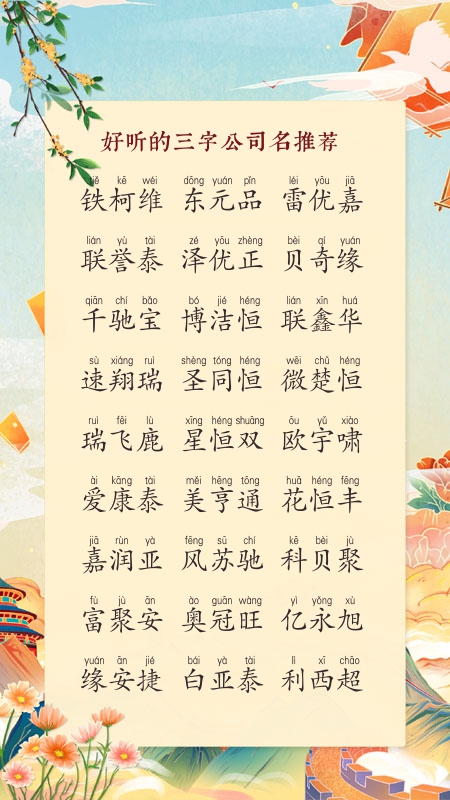 好听的三字公司名推荐
tiě kē wéi dōng yuán pǐn léi yōu jiā
铁柯维 东元品 雷优嘉
lián yù tài zé yōu zhèng bèi qí yuán
联誉泰 泽优正 贝奇缘
qiān chí bǎo bó jié héng lián xīn huá
千驰宝 博洁恒 联鑫华
sù xiáng ruì shèng tóng héng wēi chǔ héng
速翔瑞 圣同恒 微楚恒
ruì fēi lù xīng héng shuāng ōu yǔ xiào
瑞飞鹿 星恒双 欧宇啸
ài kāng tài měi hēng tōng huā héng fēng
爱康泰 美亨通 花恒丰
jiā rùn yà fēng sū chí kē bèi jù
嘉润亚 风苏驰 科贝聚
fù jù ān ào guān wàng yì yǒng xù
富聚安 奥冠旺 亿永旭
yuán ān jié bái yà tài lì xī chāo
缘安捷 白亚泰 利西超